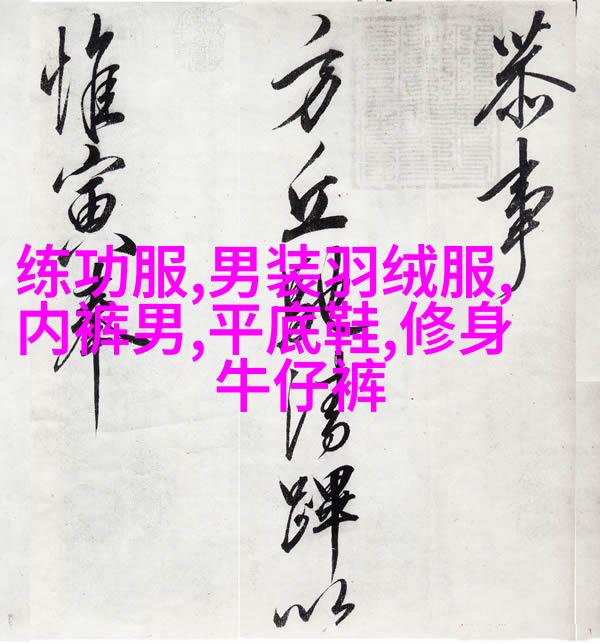 恭事
方丘清蹕以
惟寅
练功服,男装羽绒服,
内裤男,平底鞋,修身
牛仔裤